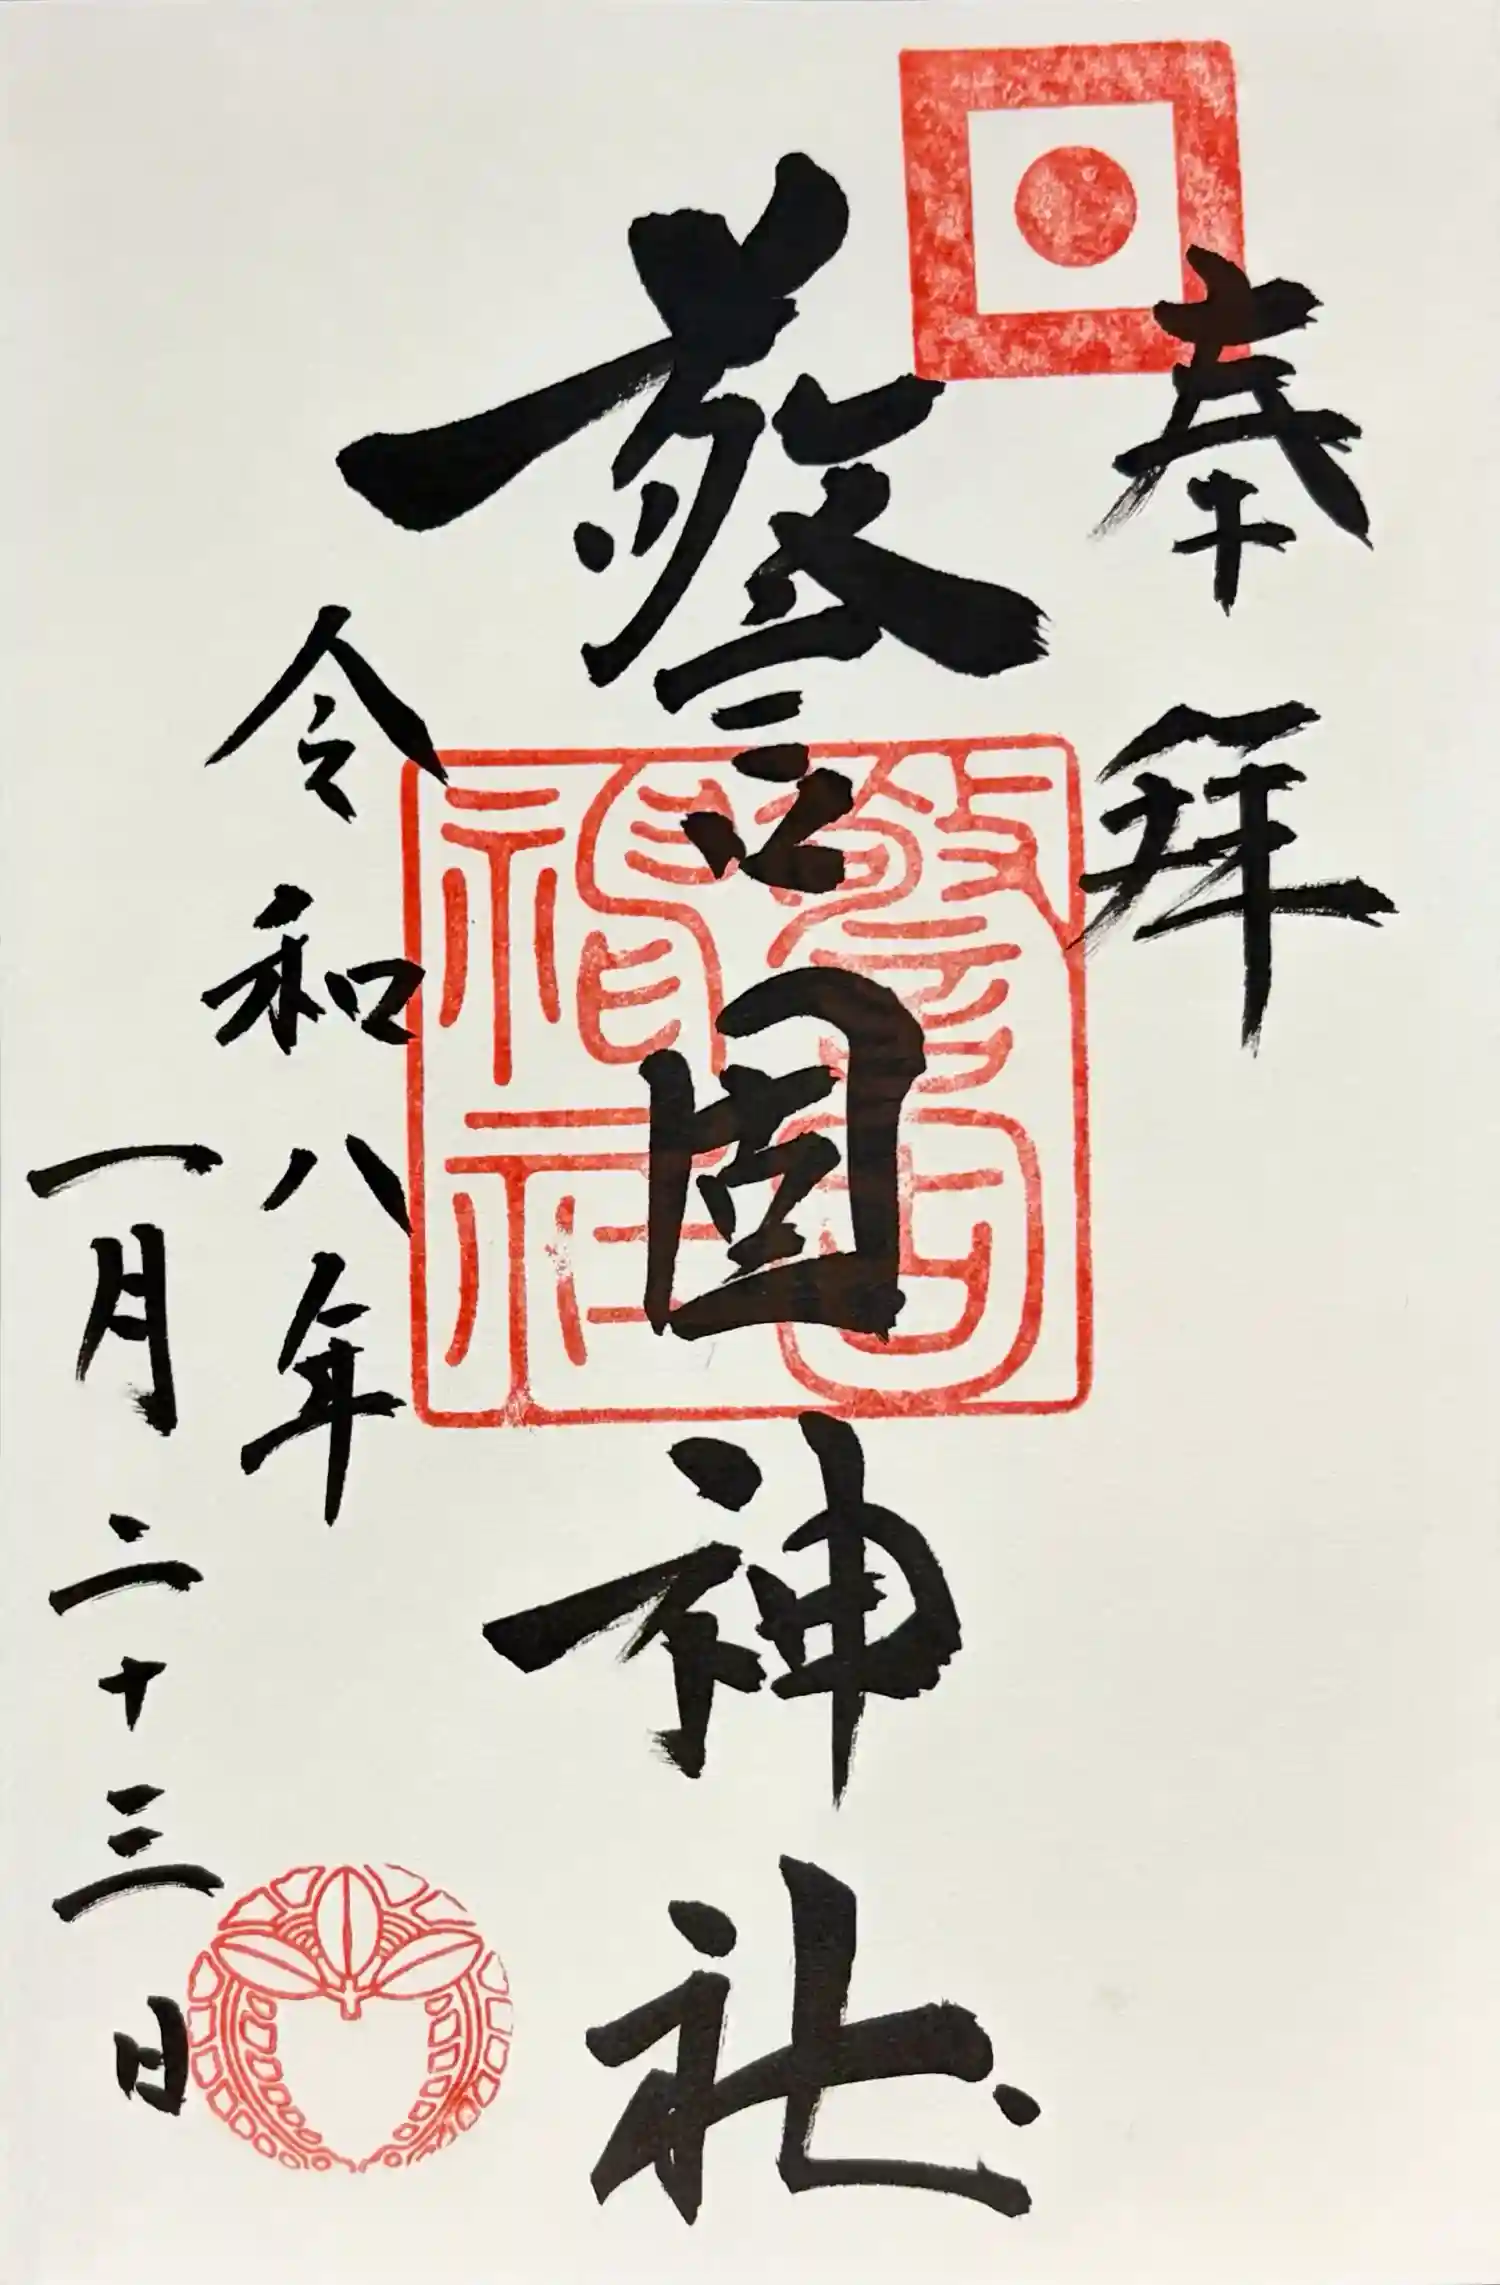 奉拝
警固神社
警固神社
令和八年
一月二十三日